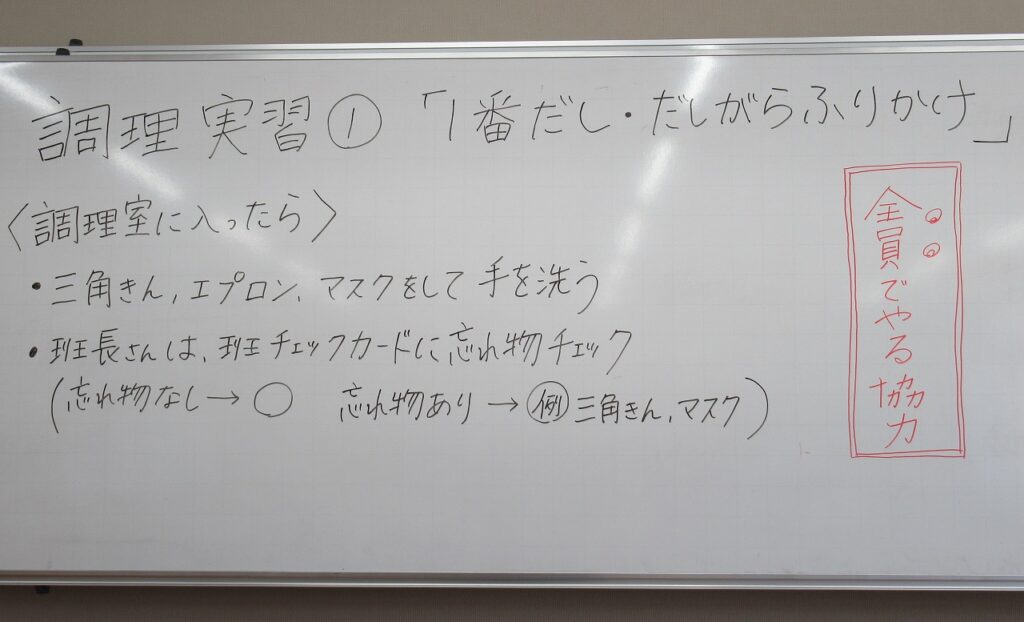 調理実習① 「1番だし・だしがらふりかけ」
〈調理室に入ったら〉
・三角きん,エプロン、マスクをして手を洗う
・班長さんは、班チェックカードに忘れ物チェック
(忘れ物なし→○ 忘れ物あり→㋹三角きん,マスク)
全員でやる協力